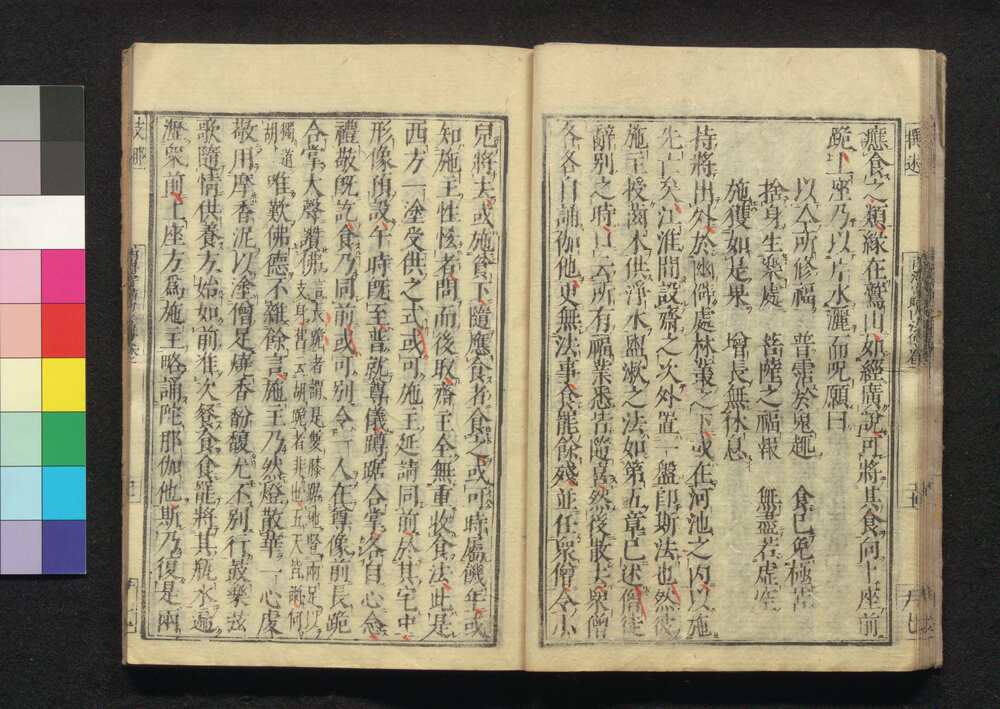 撰述
應食之類緣在鷲山如經廣說可將其食向上座前
跪上座乃以片水灑而呪願曰
以今所修福　普霑於鬼趣　食已免極苦
捨身生樂處　菩薩之福報　無盡若虛空
施獲如是果　增長無休息
持將出外於幽僻處林叢之下或在河池之內以施
先亡矣江淮間設齋之次外置一盤即斯法也然後
施主授齒木供淨水盥漱之法如第五章已述僧徒
辭別之時口云所有福業悉皆隨喜然後散去衆僧
各各自誦伽他更無法事食罷餘殘並任衆僧令小
兒將去或施貧下隨應食者食之或可時屬饑年或
知施主性悋者問而後取齋主全無重收食法此是
西方一途受供之式或可施主延請同前於其宅中
形像預設午時既至普就尊儀蹲踞合掌各自心念
禮敬既訖食乃同前或可別令一人在尊像前長跪
合掌大聲讚佛言長跪者謂是雙膝踞地豎兩足以
支身舊云胡跪者非也五天皆爾何
獨道
胡唯歎佛德不雜餘言施主乃然燈散華一心虔
敬用摩香泥以塗僧足燒香酚馥元不別行鼓樂絃
歌隨情供養方始如前准次餐食食罷將其瓶水遍
瀝衆前上座方爲施主略誦陀那伽他斯乃復是兩